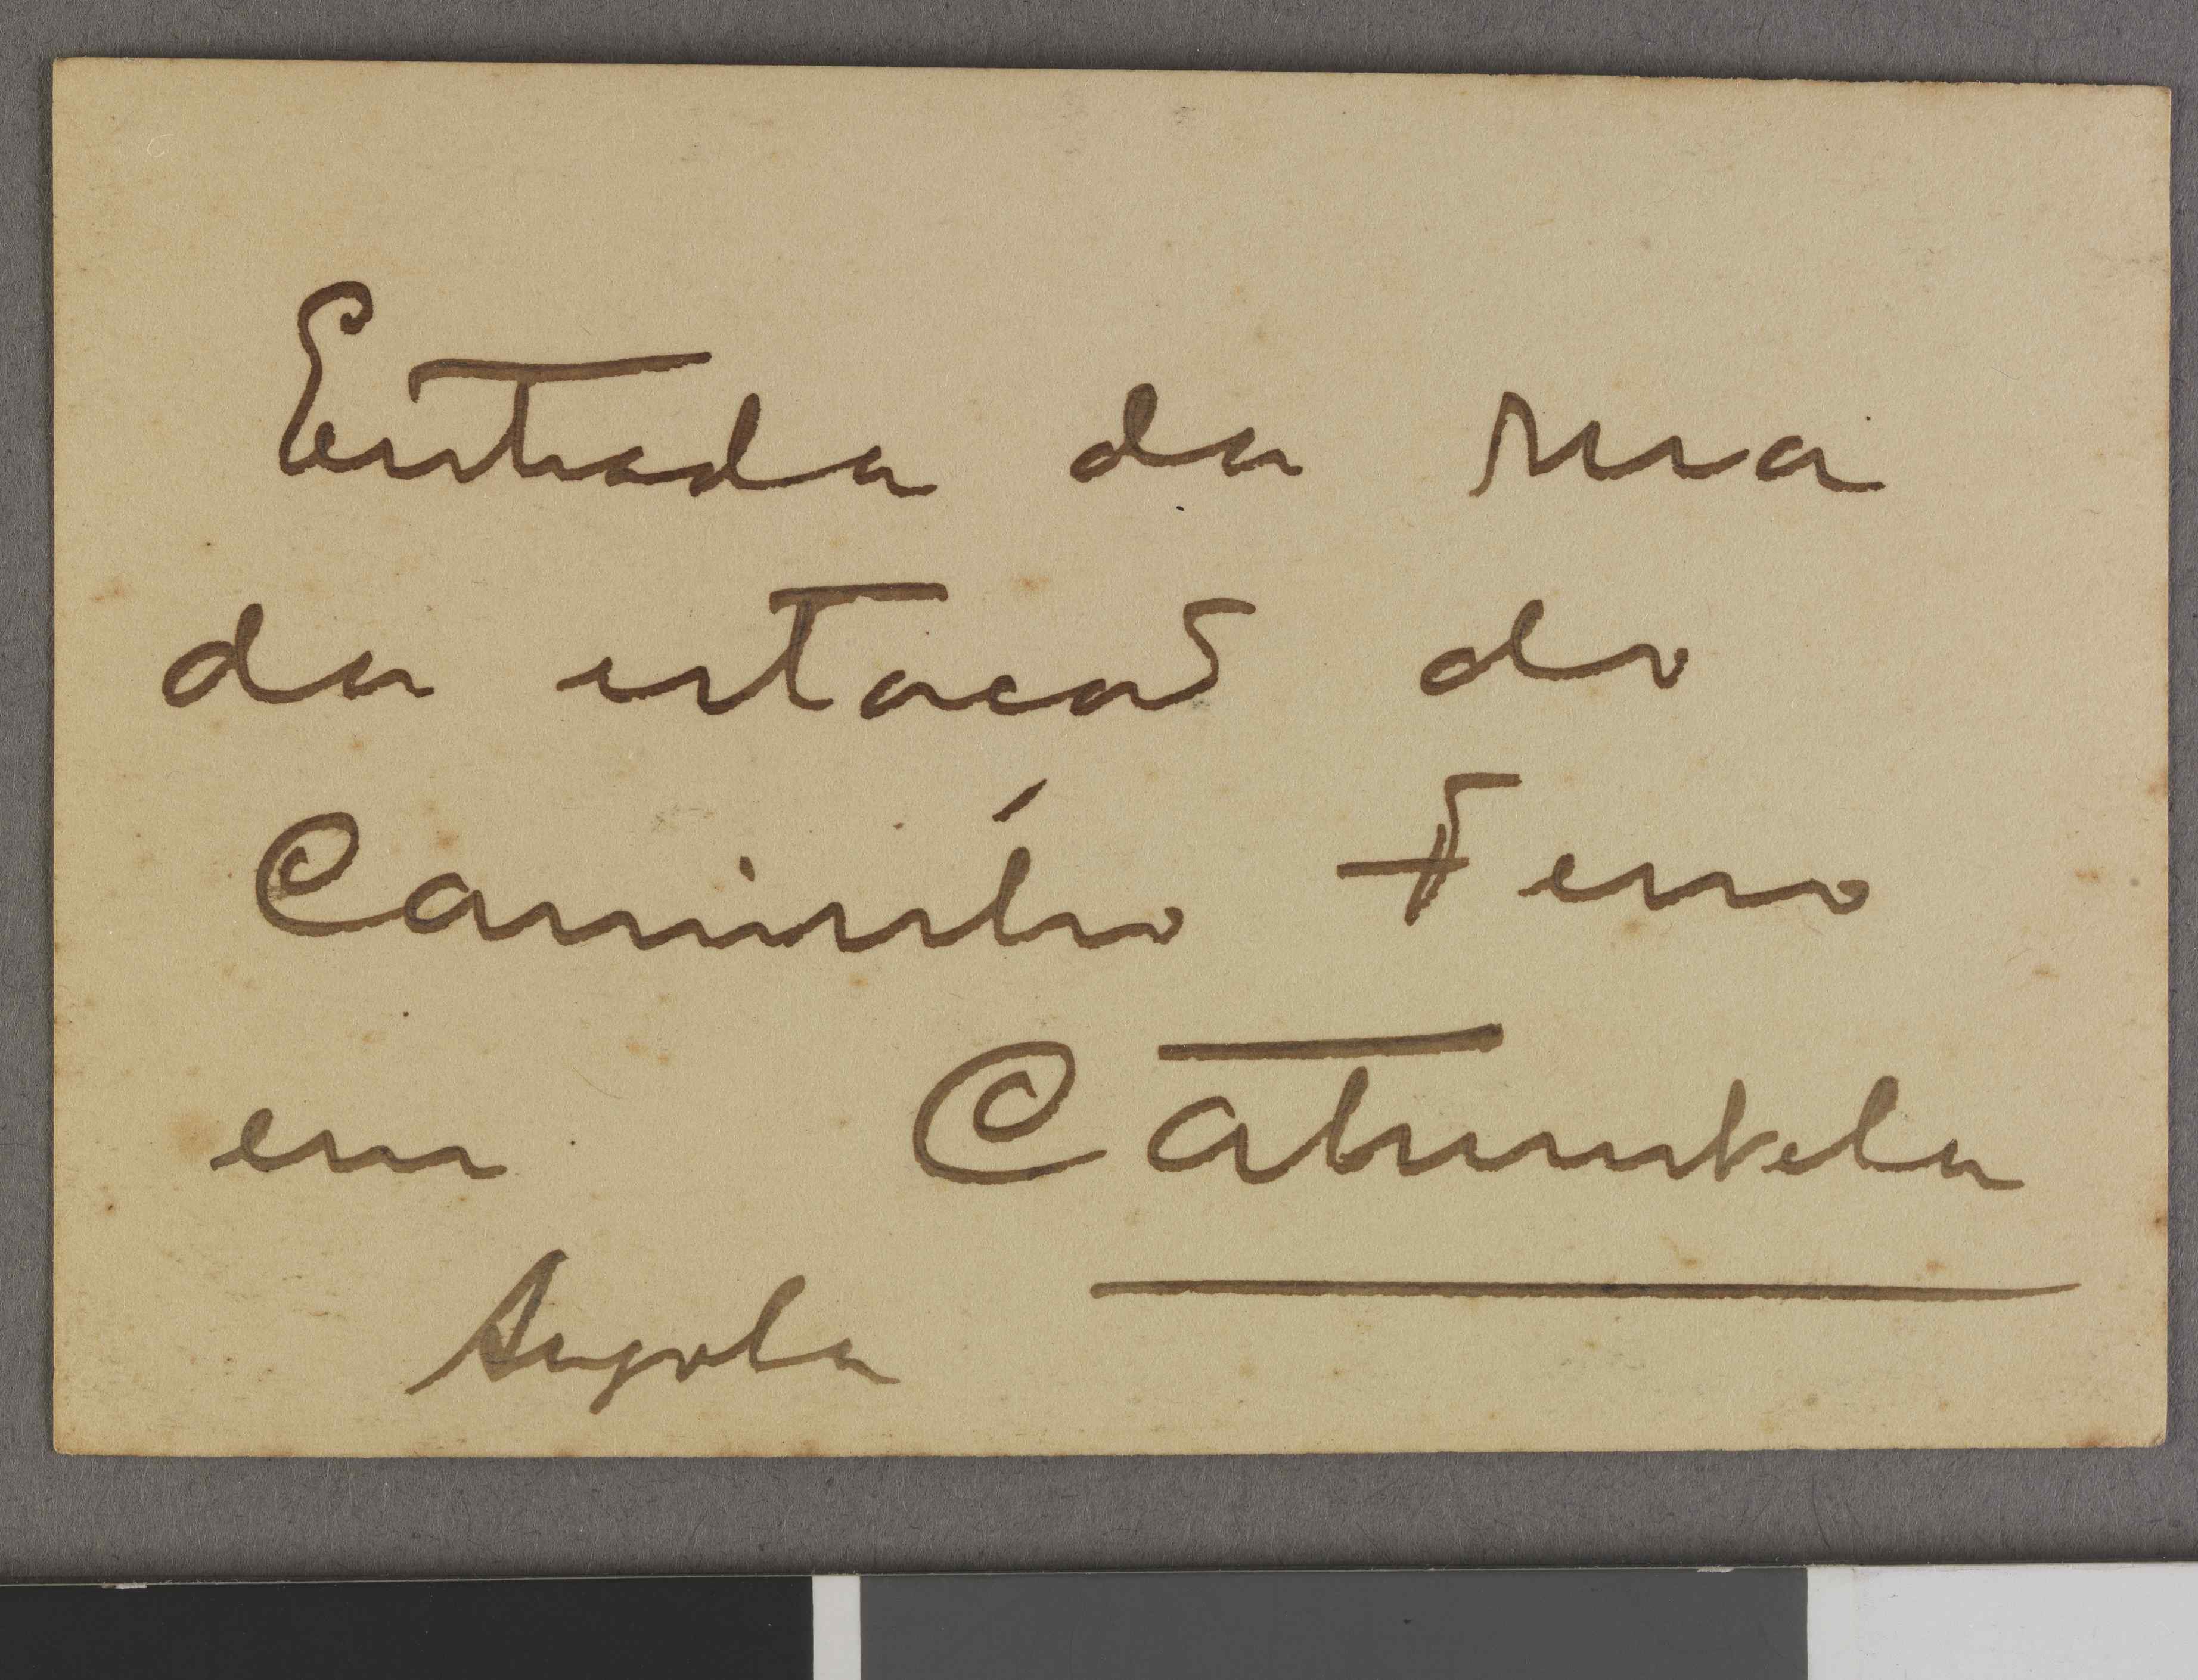 Entrada da rua
da estacaõ do
Caminho Ferro
em Catumbela
Angola